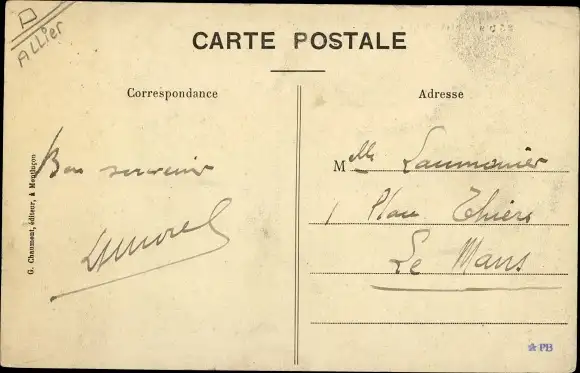 D
ALLier
CARTE POSTALE
Correspondance
Adresse
Bon souvenir
Mlle Laumonier
1 Place Thiers
Le Mans
G. Chaumont, éditeur, à Montluçon
PB